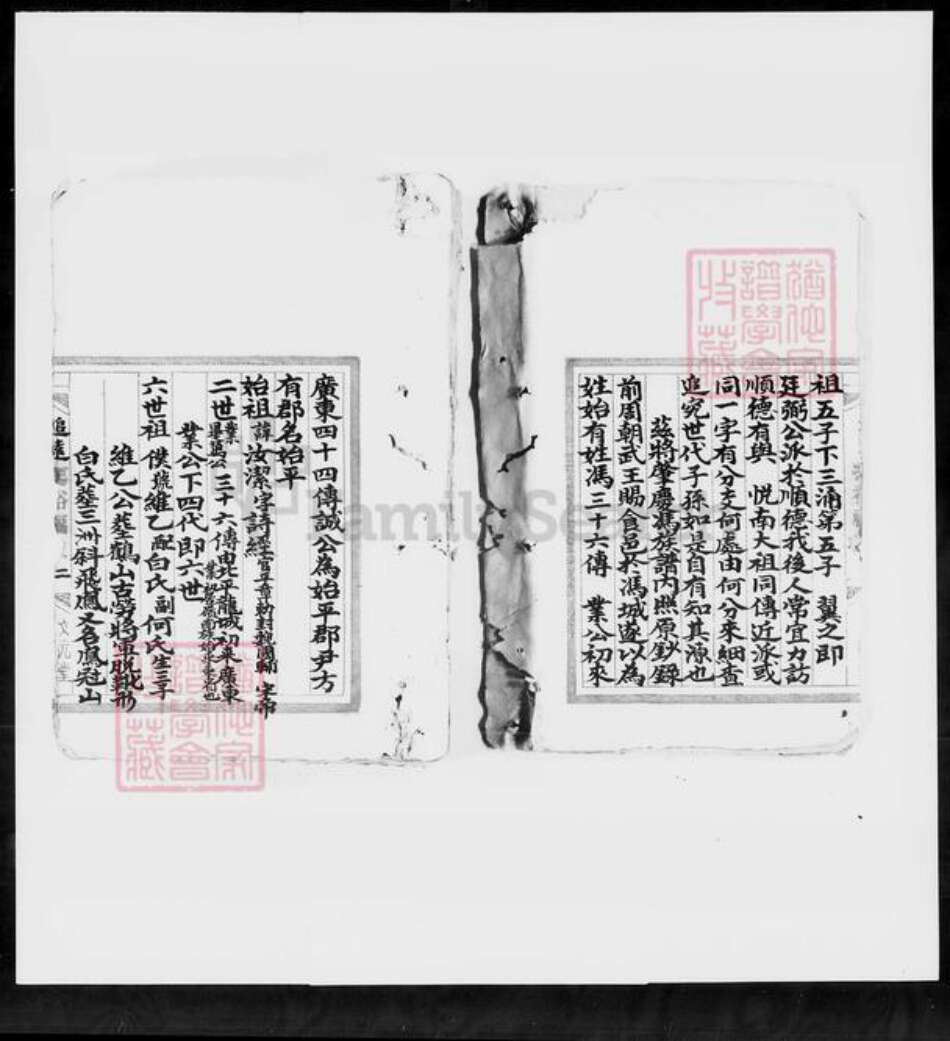 祖五子下三浦第五子　翼之即
廷弼公派於順德我後人常宜力訪
順德有與　悅南大祖同傳近派或
同一字有分支何處由何分來細查
追究世代子孫如是自有知其源也
茲將肇慶馮族譜內照原鈔錄
前周朝武王賜食邑於馮城遂以為
姓始有姓馮三十六傳　業公初來
廣東四十四傳誠公為始平郡尹方
有郡名始平
始祖諱汝潔字詩經
二世三十六傳由北平龍城初來廣東
業公下四代即六世
六世祖僕號維乙配白氏副何氏生三子
維乙公塟鶴山古勞將軍脫靴形
白氏塟三洲斜飛鳳又名鳳冠山
追遠
二
猶他家譜學會收藏
猶他家譜學會收藏
FamilySearch